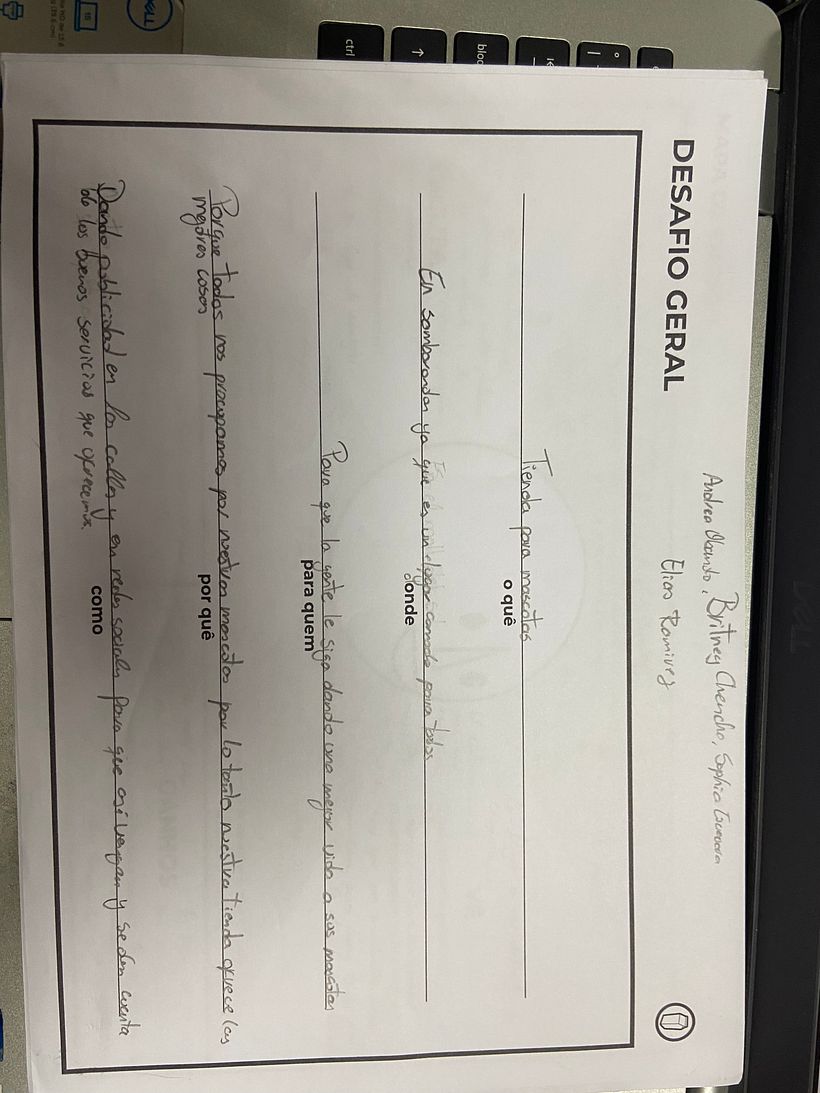 DESAFIO GERAL
Andrea Obando, Britney Chencho, Sophia
Elian Ramirez
Tienda para mascotas
o quê
En samborondon ya que es un lugar comodo para todos
onde
Para que la gente le siga dando una mejor vida a sus mascotas
para quem
Porque todos nos procupamos por nuestras mascotas por lo tanto nuestra tienda ofrece las
mejores cosas
por quê
Dando publicidad en las calles y en redes sociales para que asi vengan y se den cuenta
de los buenos servicios que ofrecemos.
como
ctrl
↑
bloq
DELL